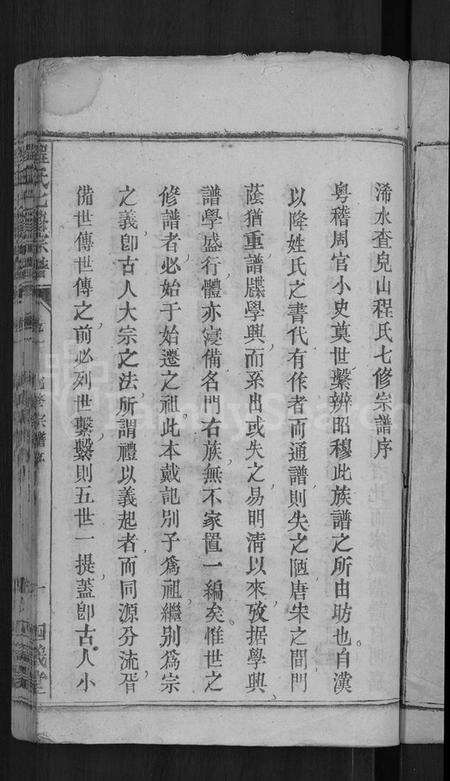 浠水查兒山程氏七修宗譜序
粵稽周官小史奠世繫辨昭穆此族譜之所由昉也自漢
以降姓氏之書代有作者而通譜則失之陋唐宋之間門
蔭猶重譜牒學興而系出或失之易明清以來攷据學興
譜學盛行體亦寖備名門右族無不家置一編矣惟世之
修譜者必始于始遷之祖此本戴記別子為祖繼別為宗
之義卽古人大宗之法所謂禮以義起者而同源分流胥
備世傳世傳之前必列世繫繫則五世一提蓋卽古人小
FamilySearch